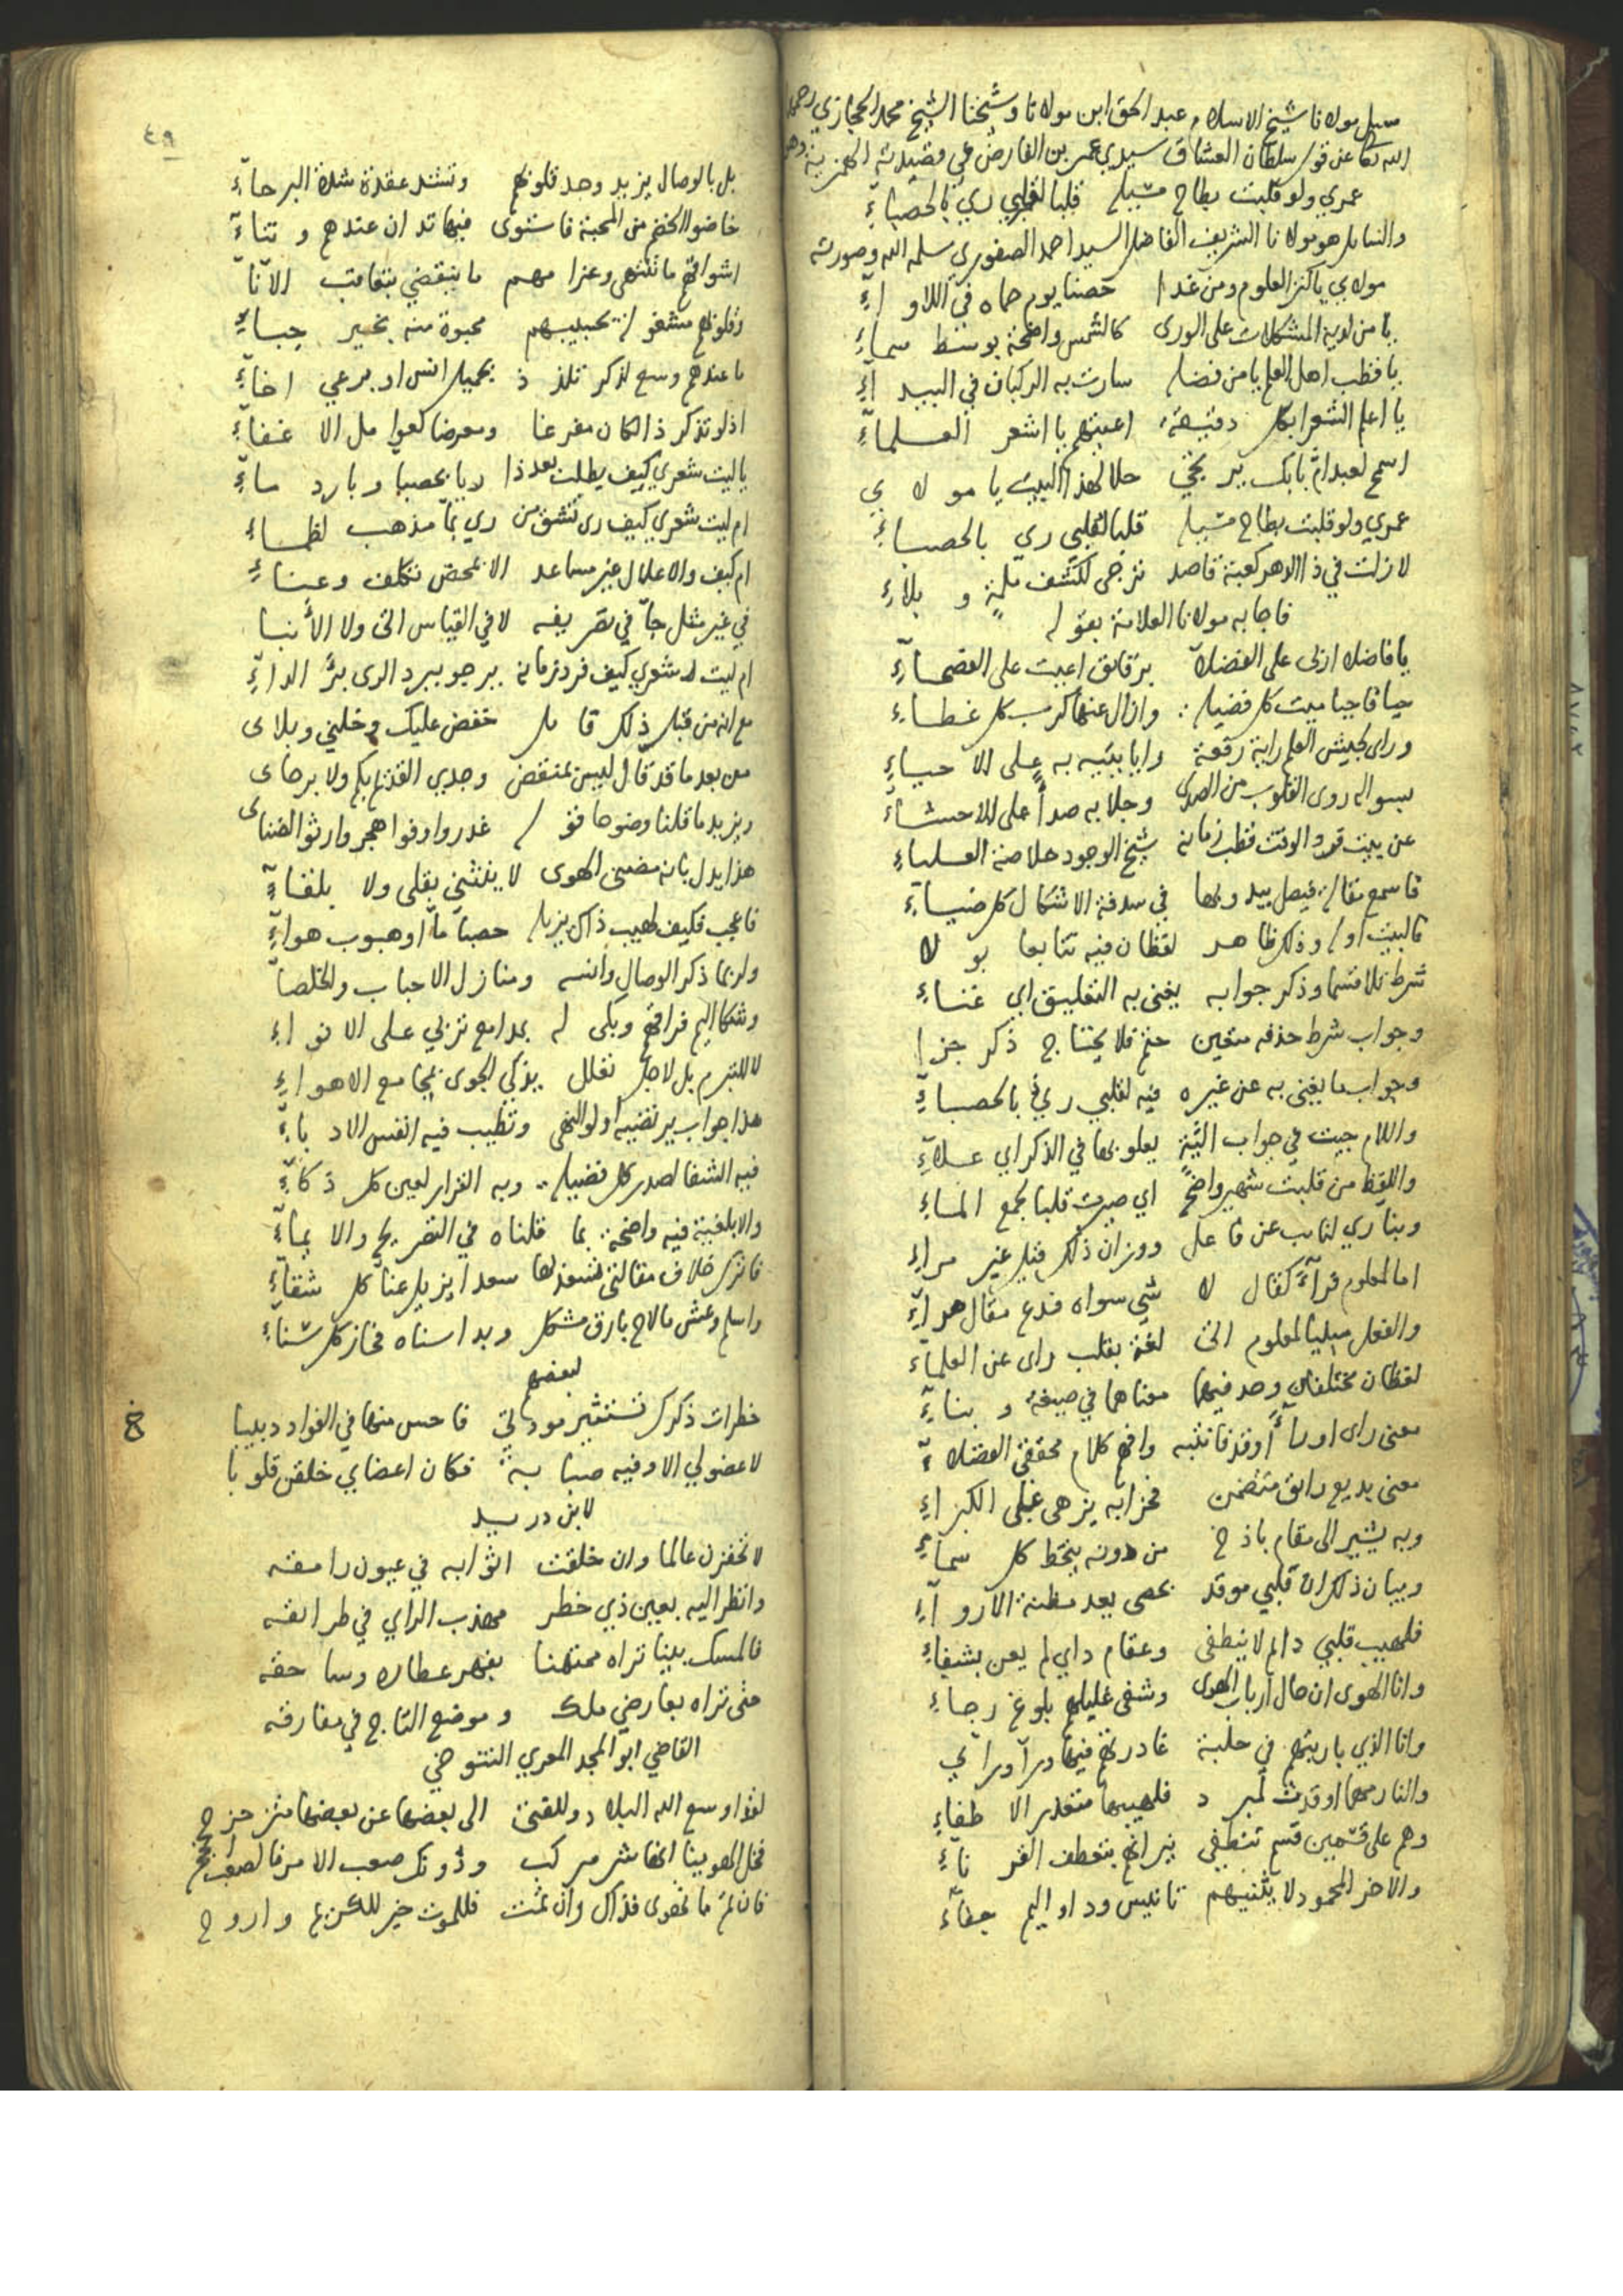 سيل مولانا شيخ الاسلام عبد الحق ابن مولانا وشيخنا الشيخ محمد الحجازي رحمهما
الله تعا عن قول سلطان العشاق سيدي عمر بن الفارض في قصيدته الهمزية وهو
عمري ولو قلبت بطاح مسيله قلبا لقلبي ري بالحصباءِ
والسايل هو مولانا الشريف الفاضل السيد احمد الصفوري سلمه الله وصورته
مولاي يا كنز العلوم ومن غدا حصنا يوم حماه في اللاواءِ
يا من لديه المشكلات على الورى كالشمس واضحة بوسط سماءِ
يا قطب اهل العلم يا من فضله سارت به الركبان في البيداءِ
يا اعلم الشعرا بكل دقيقة اعييتهم يا اشعر العلماءِ
اسمح لعبد امّ بابك يرتجي حلا لهذا البيت يا مولاي
عمري ولو قلبت بطاح مسيله قلبا لقلبي ري بالحصباءِ
لا زلت في ذا الدهر كعبة قاصد ترجى لكشف ملمةٍ وبلاءِ
فاجابه مولانا العلامة بقوله
يا فاضلا ازرى على الفضلآ برقايق اعيت على الفصحآءِ
حيا فاحيا ميت كل فضيلة وازال عنها كرب كل غطاءِ
وراى لجيش العلم راية رفعة وايا بتيه به على الاحياءِ
بسواله روى القلوب من الصدى وجلا به صدأ على الاحشآء
عن بيت فرد الوقت قطب زمانه شيخ الوجود خلاصة العلماءِ
فاسمع مقالة فيصل يبدو بها في سدفة الاشكال كل ضياءِ
فالبيت اوله وذلك ظاهر لفظان فيه تتابعا بولا
شرط تلا قسما وذكر جوابه يغني به التعليق اي غناءِ
وجواب شرط حذفه متعين حتم فلا يحتاج ذكر جزا
وجواب ما يغني به عن غيره فيه لقلبي ريّ بالحصبآءِ
واللام جيت في جواب اليّةٍ يعلو بها في الذكر اي علآءِ
واللفظ من قلبت شهير واضحٌ اي صيرت قلبا بجمع الماءِ
وبنا ري لنايب عن فاعل ووزان ذلك قيل غير مراءِ
اما لمعلوم فرآء كقال لا شي سواه فدع مقال هرآءِ
والفعل مبنيا لمعلوم اتى لغة بقلب راى عن العلمآء
لفظان مختلفان وحد فيهما معناهما في صيغة وبناءِ
معنى راى او رآء او قد فانتبه وافهم كلام محقق الفضلآء
معنى بديع رايق متضمن فخرا به يزهى على الكبراءِ
وبه يشير الى مقام باذخ من دونه ينحط كل سماءِ
وبيان ذلك ان قلبي موقد بحصى يعد مظنة الاروآءِ
فلهيب قلبي دايم لا ينطفي وعقام دايي لم يعن بشفاءِ
وانا الهوى ان حال ارباب الهوى وشفى غليلهم بلوغ رجاءِ
وانا الذي باريتهم في حلبة غادرتهم فيها ورآ ورآيي
والنار مهما اوقدت لمبرد فلهيبها متعذر الاطفاءِ
وهم على قسمين قسم تنطفي نيرانهم بتعطف القرناءِ
والاخر المحمود لا يثنيهم تانيس ود او اليم جفآء
٤٩
بل بالوصال يزيد وجد قلوبهم وتشتد عقدة شدة البرحآءِ
خاضوا الخضم من المحبة فاستوى فيها تدان عندهم وتنآء
اشواقهم ما تنتهي وعزامهم ما ينقضي بتعاقب الآنآ
وقلوبهم مشغولة بحبيبهم محبوة منه بخير حباءِ
ما عندهم وسع لذكر تلذذ بجميل انس او برعي اخآءِ
اذ لو تذكر ذا لكان مفرعا ومعرضا لعوامل الاغفآءِ
يا ليت شعري كيف يطلب بعد ذا ريا بحصبا وبارد مآءِ
ام ليت شعري كيف ري تنشق من ري بمآ مذهب لظماءِ
ام كيف والاعلال غير مساعد الا بمحض تكلف وعناءِ
في غير مثل جآ في تصريفه لا في القياس اتى ولا الأنبا
ام ليت شعري كيف فرد زمانه يرجو ببرد الري برّ الدآءِ
مع انه من قبل ذلك قايل خفض عليك وخلني وبلاى
من بعد ما قد قال ليس بمنقض وجدي القديم بكم ولا برحاى
ويزيد ما قلنا وضوحا قوله غدروا وفوا هجروا رثوا لضناى
هذا يدل بانه مضنى الهوى لا ينثني بقلى ولا بلقاءِ
فاعجب فكيف لهيب ذاك يزيله حصبآ مآ او هبوب هوآءِ
ولربما ذكر الوصال وانسه ومنازل الاحباب والخلصآ
وشكا اليم فراقهم وبكى له بمدامع تربي على الانواءِ
لا للتبرم بل لاجل تعلل يذكي الجوى بمجامع الاهواءِ
هذا جواب يرتضيه اولو النهى وتطيب فيه انفس الادباءِ
فيه الشفا لصدر كل فضيلة وبه القرار لعين كل ذكآءِ
والابلغية فيه واضحة بما قلناه في التصريح والايماءِ
فاترك خلاف مقالتي تسعد بها سعدا يزيل عناك كل شقآءِ
واسلم وعش ما لاح بارق مشكل وبدا سناه فحاز كل سناءِ
لبعضهم
خطرات ذكرك تستثير مودتي فاحس منها في الفواد دبيبا
لا عضو لي الا وفيه صبابة فكان اعضاي خلقن قلوبا
لابن دريد
لا تحقرن عالما وان خلقت اثوابه في عيون رامقه
وانظر اليه بعين ذي خطر مهذب الراي في طرايقه
فالمسك بينا تراه ممتهنا بفهر عطاره وساحقه
حتى تراه بعارضي ملك وموضع التاج في مفارقه
القاضي ابو المجد المعري التنوخي
لقد اوسع الله البلاد وللفتى الى بعضها عن بعضها متزحزح
فخل الهوينا انها شر مركب ودونك صعب الامر فالصعب انجح
فان نلت ما تهوى فذاك وان تمت فللموت خير للكريم واروح